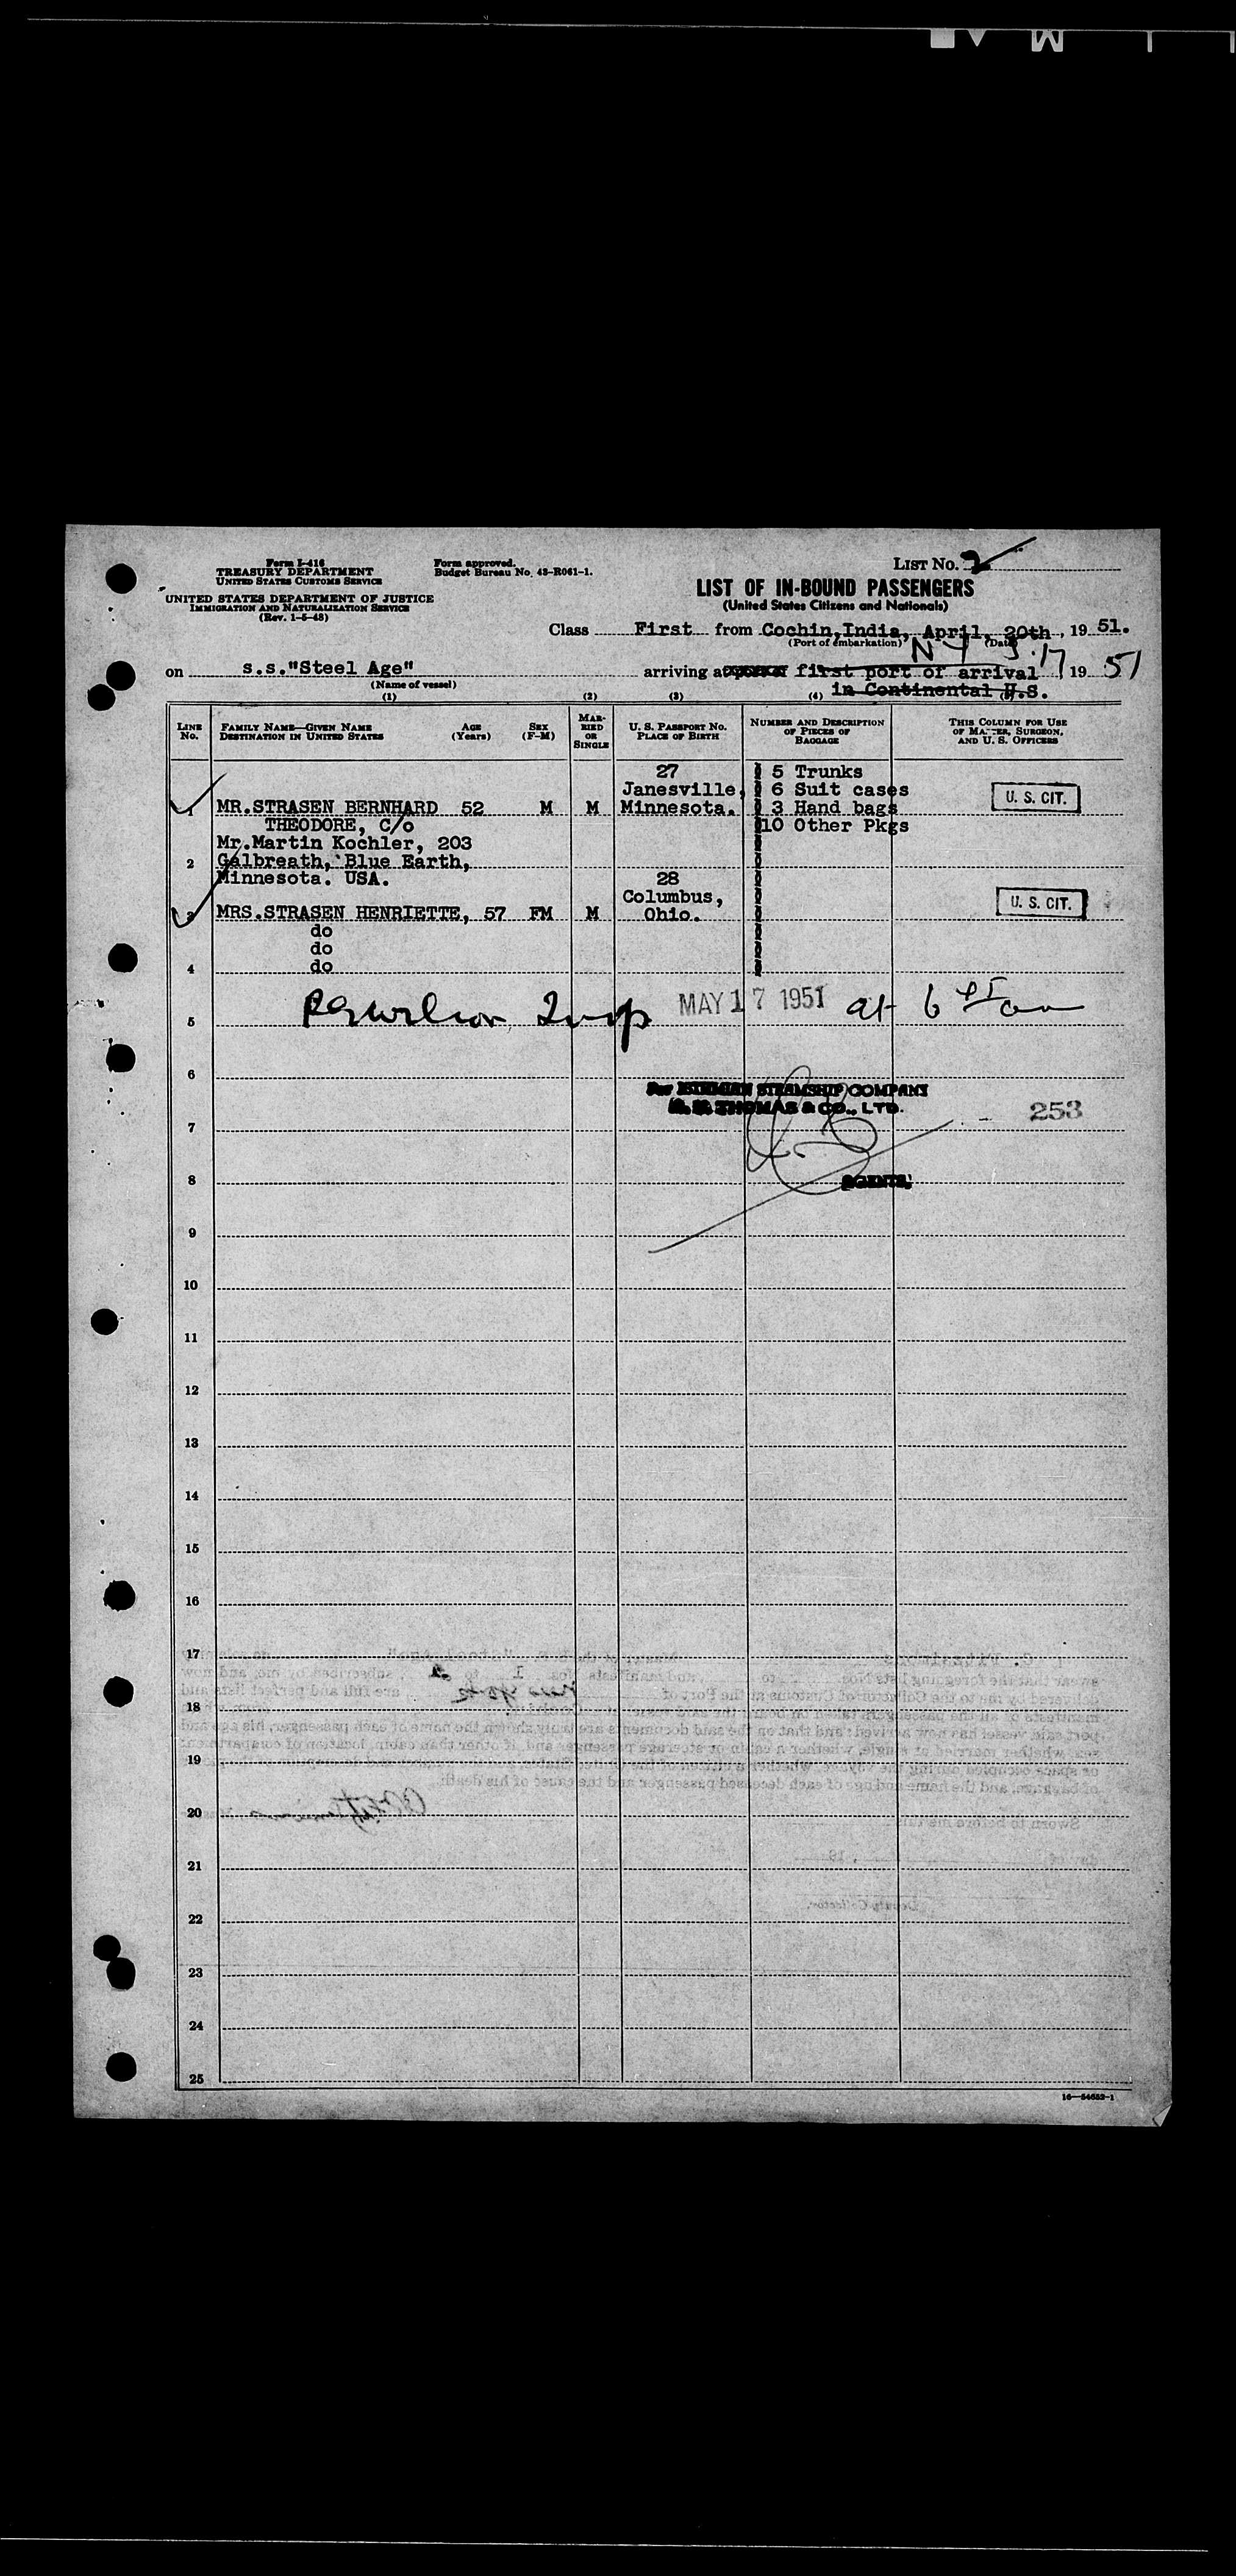 Form I-416
TREASURY DEPARTMENT
UNITED STATES CUSTOMS SERVICE
UNITED STATES DEPARTMENT OF JUSTICE
IMMIGRATION AND NATURALIZATION SERVICE
(Rev. 1-5-48)
Form approved.
Budget Bureau No. 43-R061-1.
LIST No. 2
LIST OF IN-BOUND PASSENGERS
(United States Citizens and Nationals)
Class First from Cochin, India, April, 20th, 19 51.
(Port of embarkation) (Date)
N Y 5.17
on s.s."Steel Age" arriving at first port of arrival 19 51
(Name of vessel)
in Continental U.S.
(1) (2) (3) (4) (5)
LINE No. FAMILY NAME—GIVEN NAME DESTINATION IN UNITED STATES AGE (Years) SEX (F-M) MARRIED OR SINGLE U. S. PASSPORT No. PLACE OF BIRTH NUMBER AND DESCRIPTION OF PIECES OF BAGGAGE THIS COLUMN FOR USE OF MASTER, SURGEON, AND U. S. OFFICERS
27 5 Trunks
Janesville, 6 Suit cases
1 MR.STRASEN BERNHARD 52 M M Minnesota. 3 Hand bags U. S. CIT.
THEODORE, C/o 10 Other Pkgs
Mr.Martin Kochler, 203
2 Galbreath, Blue Earth,
Minnesota. USA. 28
Columbus,
3 MRS.STRASEN HENRIETTE, 57 FM M Ohio. U. S. CIT.
do
do
4 do
5 MAY 17 1951 at 6
6
STEAMSHIP COMPANY
THOMAS & CO., LTD. 253
7
8 AGENTS.
9
10
11
12
13
14
15
16
17
18
19
20
21
22
23
24
25
16—54652-1